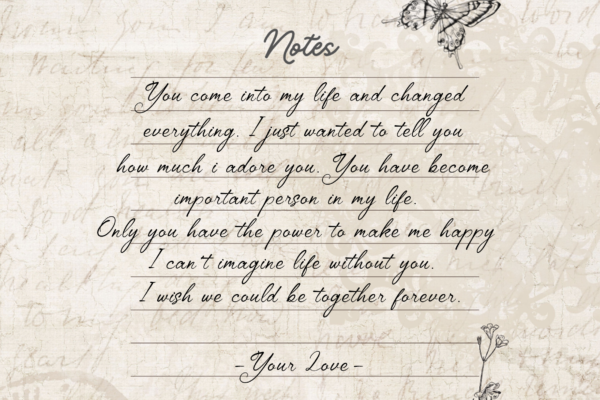 Notes
You come into my life and changed
everything. I just wanted to tell you
how much i adore you. You have become
important person in my life.
Only you have the power to make me happy
I can't imagine life without you.
I wish we could be together forever.
-Your Love-